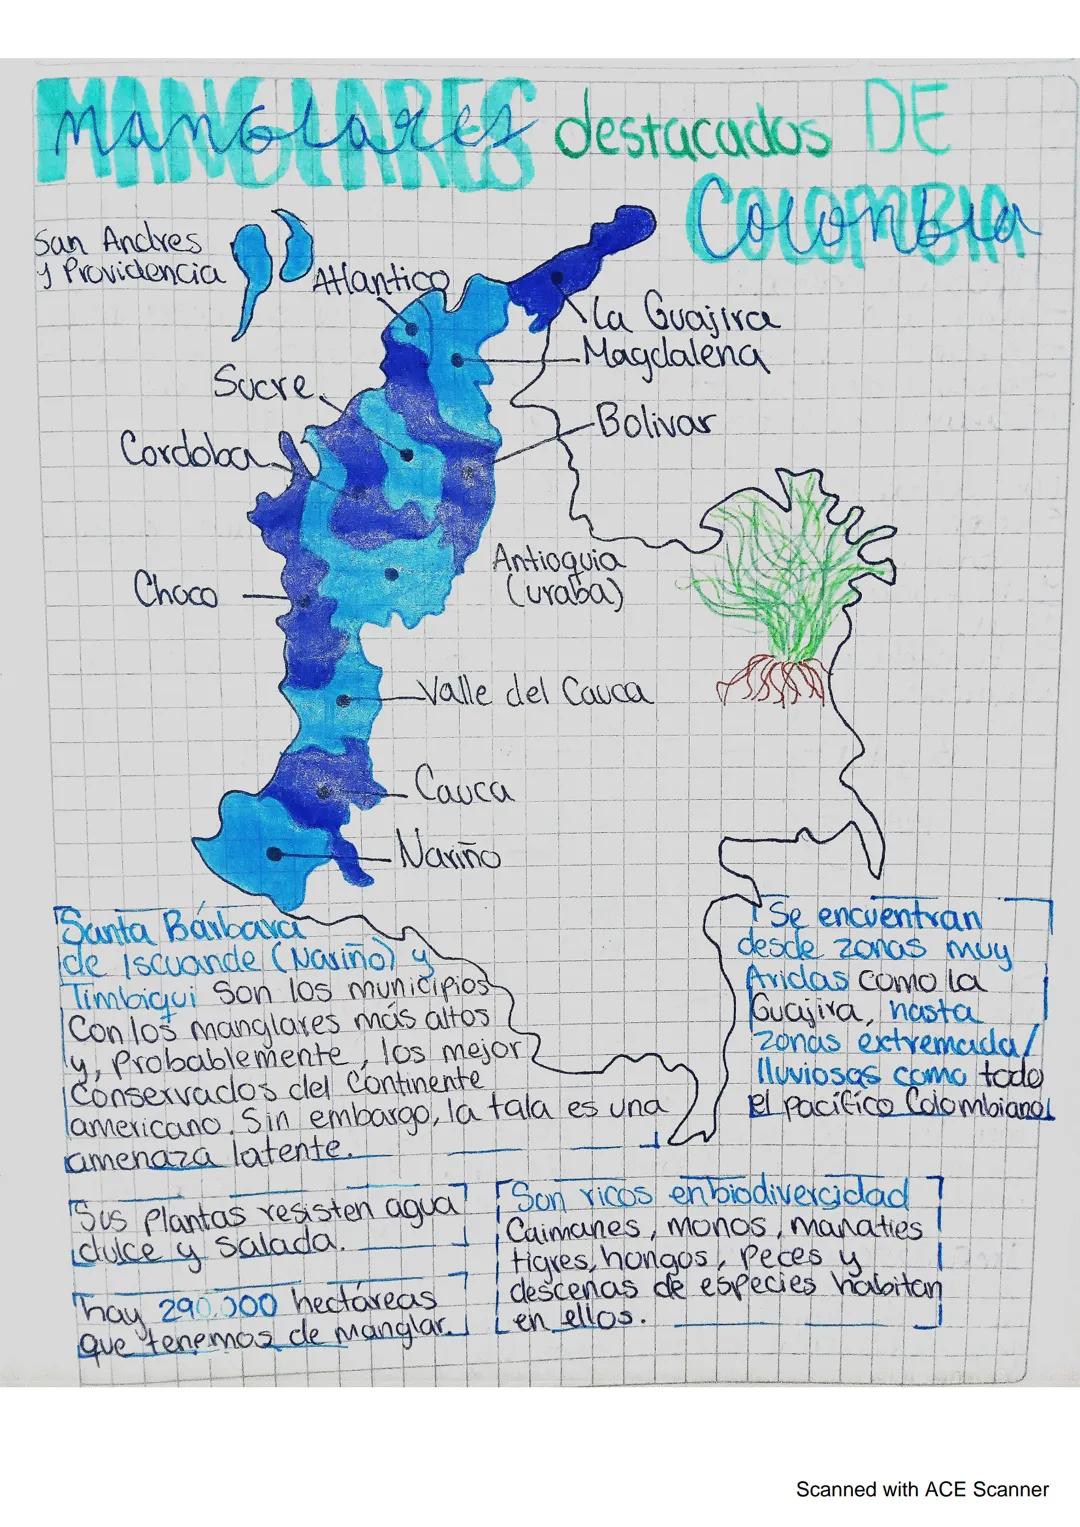 Manglares destacados DE
Colombia
San Andres
y Providencia
Atlantico
La Guajira
Magdalena
Sucre
Bolivar
Cordoba
Antioquia
(uraba)
Choco
Valle del Cauca
Cauca
Nariño
Santa Bárbara
de Iscuande (Nariño) y
Timbiqui Son los municipios
Con los manglares más altos
y, Probablemente, los mejor
Conservados del Continente
americano. Sin embargo, la tala es una
amenaza latente.
Se encuentran
desde zonas muy
Aridas como la
Guajira, hasta
zonas extremada/
lluviosas como todo
el pacifico Colombiano
Sus plantas resisten agua
dulce y salada.
hay 290.000 hectáreas
que tenemos de manglar.
Son ricos en biodivercidad
Caimanes, monos, manaties
tigres, hongos, Peces y
descenas de especies habitan
en ellos.
Scanned with ACE Scanner